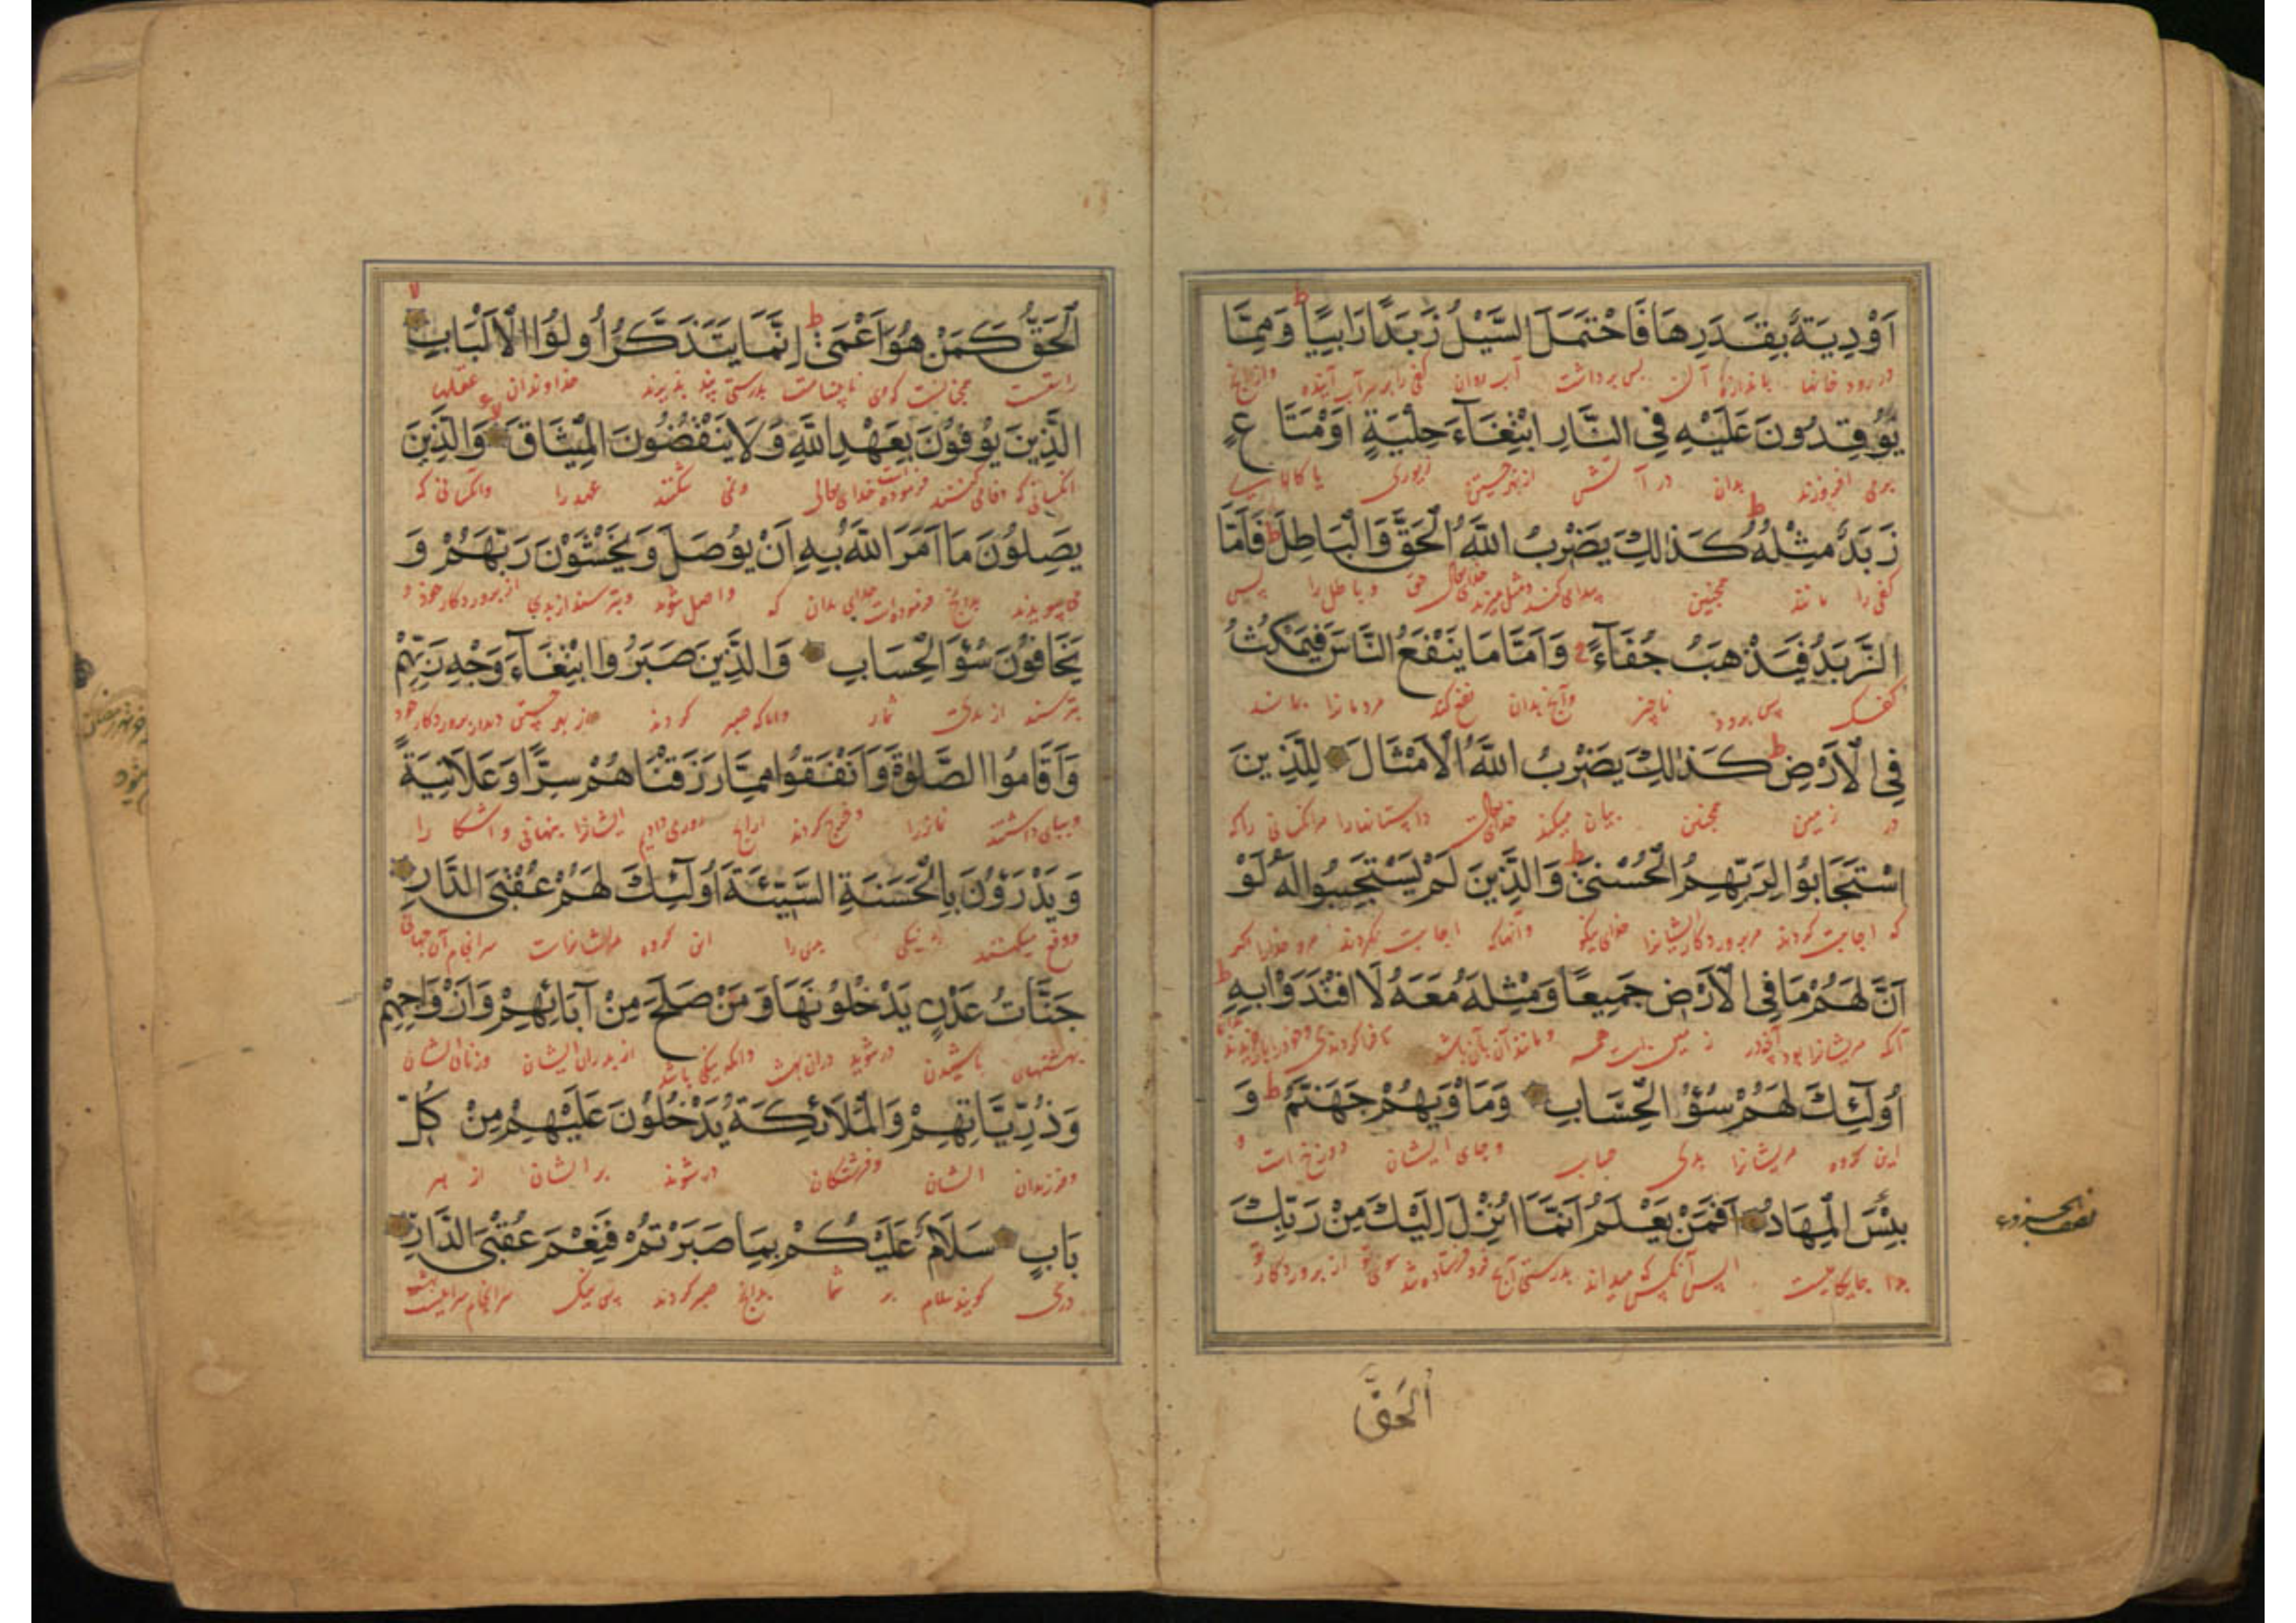 اَوْدِيَةٌ بِقَدَرِهَا فَاحْتَمَلَ السَّيْلُ زَبَدًا رَابِيًا ط وَمِمَّا
در رود خانها باندازه آن پس برداشت آب روان كفى را بر سر آب آينده وازانچ
يُوْقِدُونَ عَلَيْهِ فِي النَّارِ ابْتِغَآءَ حِلْيَةٍ اَوْمَتَاعٍ
برمى افروزند بدان در آتش از بهر جستن زيورى يا كالاى
زَبَدٌ مِثْلُهُ ط كَذٰلِكَ يَضْرِبُ اللّٰهُ الْحَقَّ وَالْبَاطِلَ ط فَاَمَّا
كفى را مانند همچنين حق وباطل را پس
الزَّبَدُ فَيَذْهَبُ جُفَآءً وَاَمَّا مَا يَنْفَعُ النَّاسَ فَيَمْكُثُ
كفك پس برود ناچيز وآنچ بدان نفع كند مردمانرا بماند
فِي الْاَرْضِ ط كَذٰلِكَ يَضْرِبُ اللّٰهُ الْاَمْثَالَ لِلَّذِينَ
در زمين همچنين بيان ميكند خداى داستانهارا مر آنكسانى راكه
اسْتَجَابُوْا لِرَبِّهِمُ الْحُسْنٰى ط وَالَّذِينَ لَمْ يَسْتَجِيبُوا لَهُ لَوْ
كه اجابت كردند مر پروردگار ايشانرا وآنهاكه اجابت نكردند مر خدايرا اگر
اَنَّ لَهُمْ مَا فِي الْاَرْضِ جَمِيعًا وَمِثْلَهُ مَعَهُ لَا افْتَدَوْا بِهِ ط
آنكه مريشانرا بود آنچ در زمين است همه ومانند آن
اُولٰٓئِكَ لَهُمْ سُوْٓءُ الْحِسَابِ وَمَاْوٰيهُمْ جَهَنَّمُ ط وَ
اين گروه مريشانرا بدى حساب وجاى ايشان دوزخ است و
بِئْسَ الْمِهَادُ اَفَمَنْ يَعْلَمُ اَنَّمَا اُنْزِلَ اِلَيْكَ مِنْ رَبِّكَ
بد جايگاهيست آنكس كه ميداند بدرستى آنچ فرو فرستاده شد سوى تو از پروردگار تو
اَلحَقُّ
الْحَقُّ كَمَنْ هُوَ اَعْمٰى ط اِنَّمَا يَتَذَكَّرُ اُولُوا الْاَلْبَابِ لا
راستست همچنانست كه وى نابيناست بدرستى پند پذيرند خداوندان عقلها
الَّذِينَ يُوْفُوْنَ بِعَهْدِ اللّٰهِ وَلَا يَنْقُضُونَ الْمِيْثَاقَ وَالَّذِينَ
آنكسانى كه وفا مى كنند خداى ونمى شكنند عهد را وآنكسانى كه
يَصِلُوْنَ مَا اَمَرَ اللّٰهُ بِهِ اَنْ يُوْصَلَ وَيَخْشَوْنَ رَبَّهُمْ وَ
مى پيوندند بدانچ فرموده است خداى بدان كه واصل شوند وبترسند از پروردگار خود و
يَخَافُوْنَ سُوْٓءَ الْحِسَابِ وَالَّذِينَ صَبَرُوا ابْتِغَآءَ وَجْهِ رَبِّهِمْ
بترسند از بدى شمار وآنانكه صبر كردند از بهر جستن ديدار پروردگار خود
وَاَقَامُوا الصَّلٰوةَ وَاَنْفَقُوا مِمَّا رَزَقْنَاهُمْ سِرًّا وَعَلَانِيَةً
وبپاى داشتند نماز را وخرج كردند ازانچ روزى داديم ايشانرا پنهانى وآشكارا
وَيَدْرَؤُنَ بِالْحَسَنَةِ السَّيِّئَةَ اُولٰٓئِكَ لَهُمْ عُقْبَى الدَّارِ
ودفع ميكنند به نيكى بدى را اين گروه مريشانراست سرانجام آن جهان
جَنَّاتُ عَدْنٍ يَدْخُلُوْنَهَا وَمَنْ صَلَحَ مِنْ آبَائِهِمْ وَاَزْوَاجِهِمْ
بهشتهاى باشيدن درشوند وآنكه نيكى باشد از پدران ايشان وزنان ايشان
وَذُرِّيَّاتِهِمْ وَالْمَلَائِكَةُ يَدْخُلُوْنَ عَلَيْهِمْ مِنْ كُلِّ
وفرزندان ايشان وفرشتگان درشوند بر ايشان از هر
بَابٍ سَلَامٌ عَلَيْكُمْ بِمَا صَبَرْتُمْ فَنِعْمَ عُقْبَى الدَّارِ
درى گويند سلام بر شما بدانچ صبر كردند پس نيك سرانجام